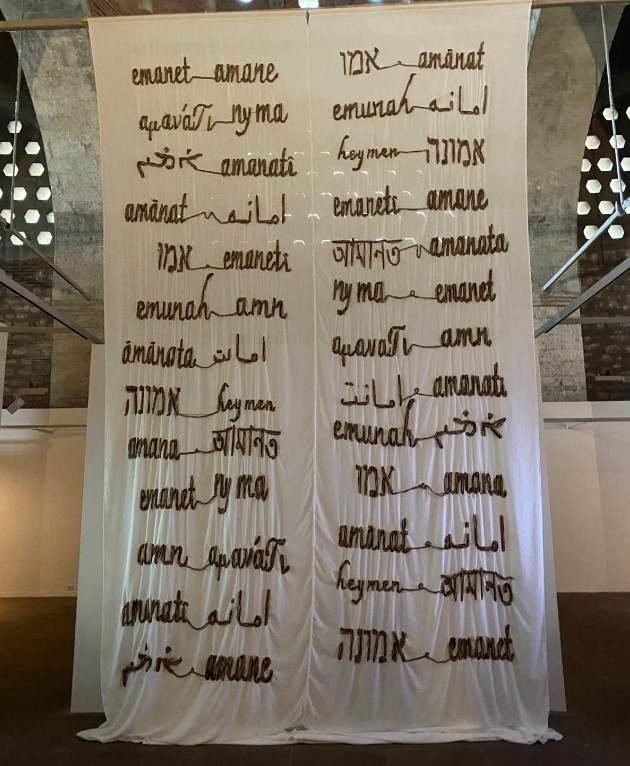 emanet amane
αμανάτι ny ma
amanatî
amānat امانه
אמו emaneti
emunah amn
āmānata امانت
אמונה heymen
amana আমানত
emanet ny ma
amn αμανάτι
amanati امانه
amane
אמו amānat
emunah امانه
heymen אמונה
emaneti amane
আমানত amanata
ny ma emanet
αμανατι amn
امانت amanati
emunah
אמו amana
amanat امانه
heymen আমানত
אמונה emanet